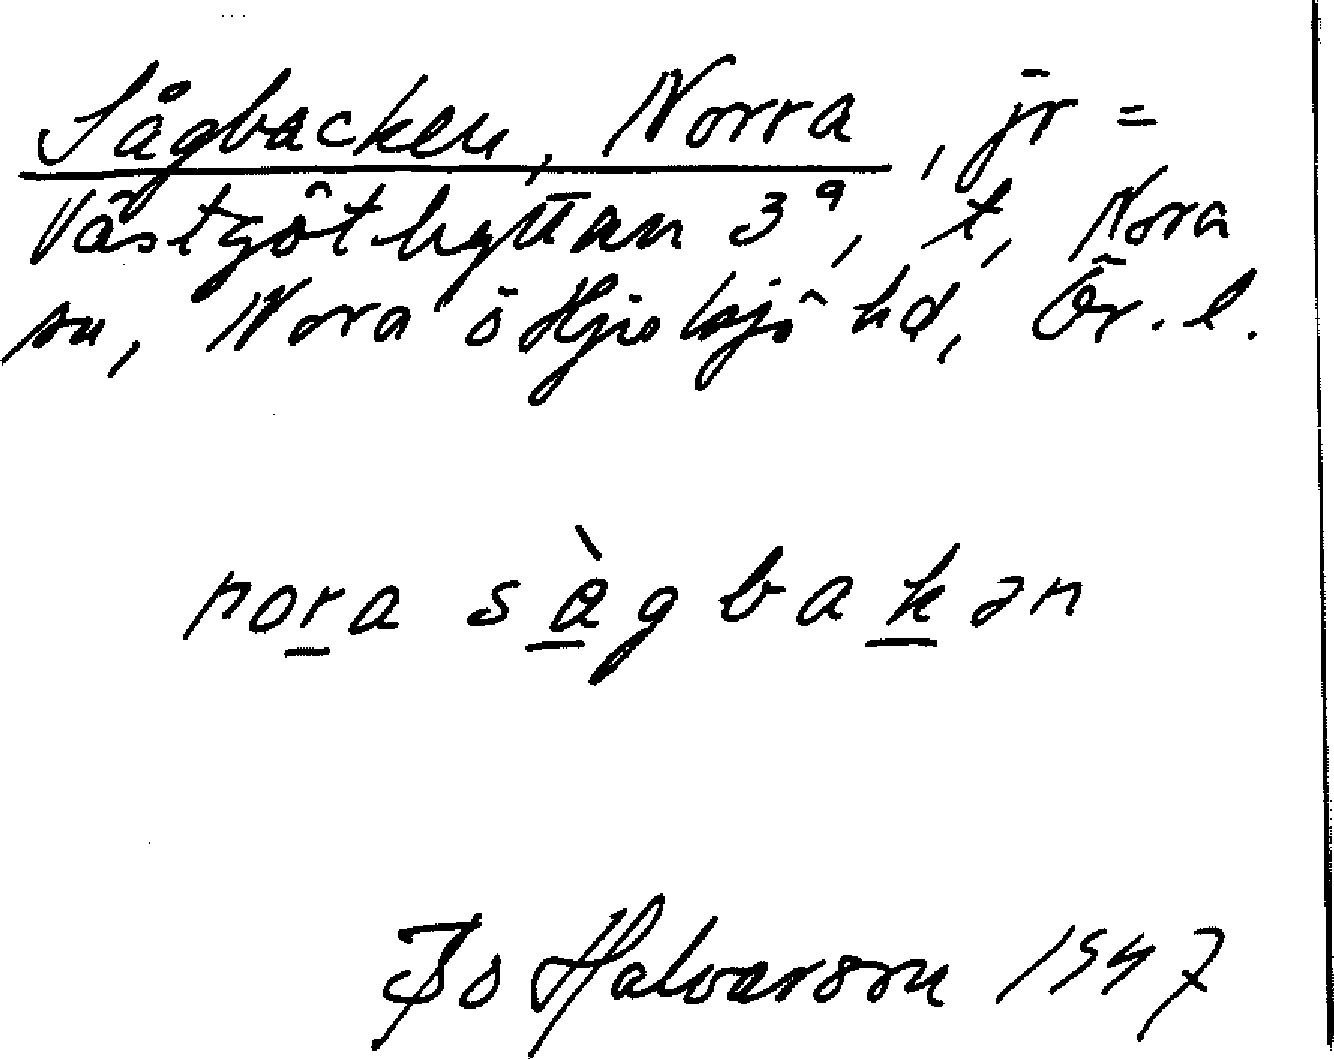 Sågbacken, Norra, jr =
Västgöthyttan 3ª, t, Nora
sn, Nora o Hjulsjö hd, Ör. l.
nora sågbakən
Bo Halvarson 1947